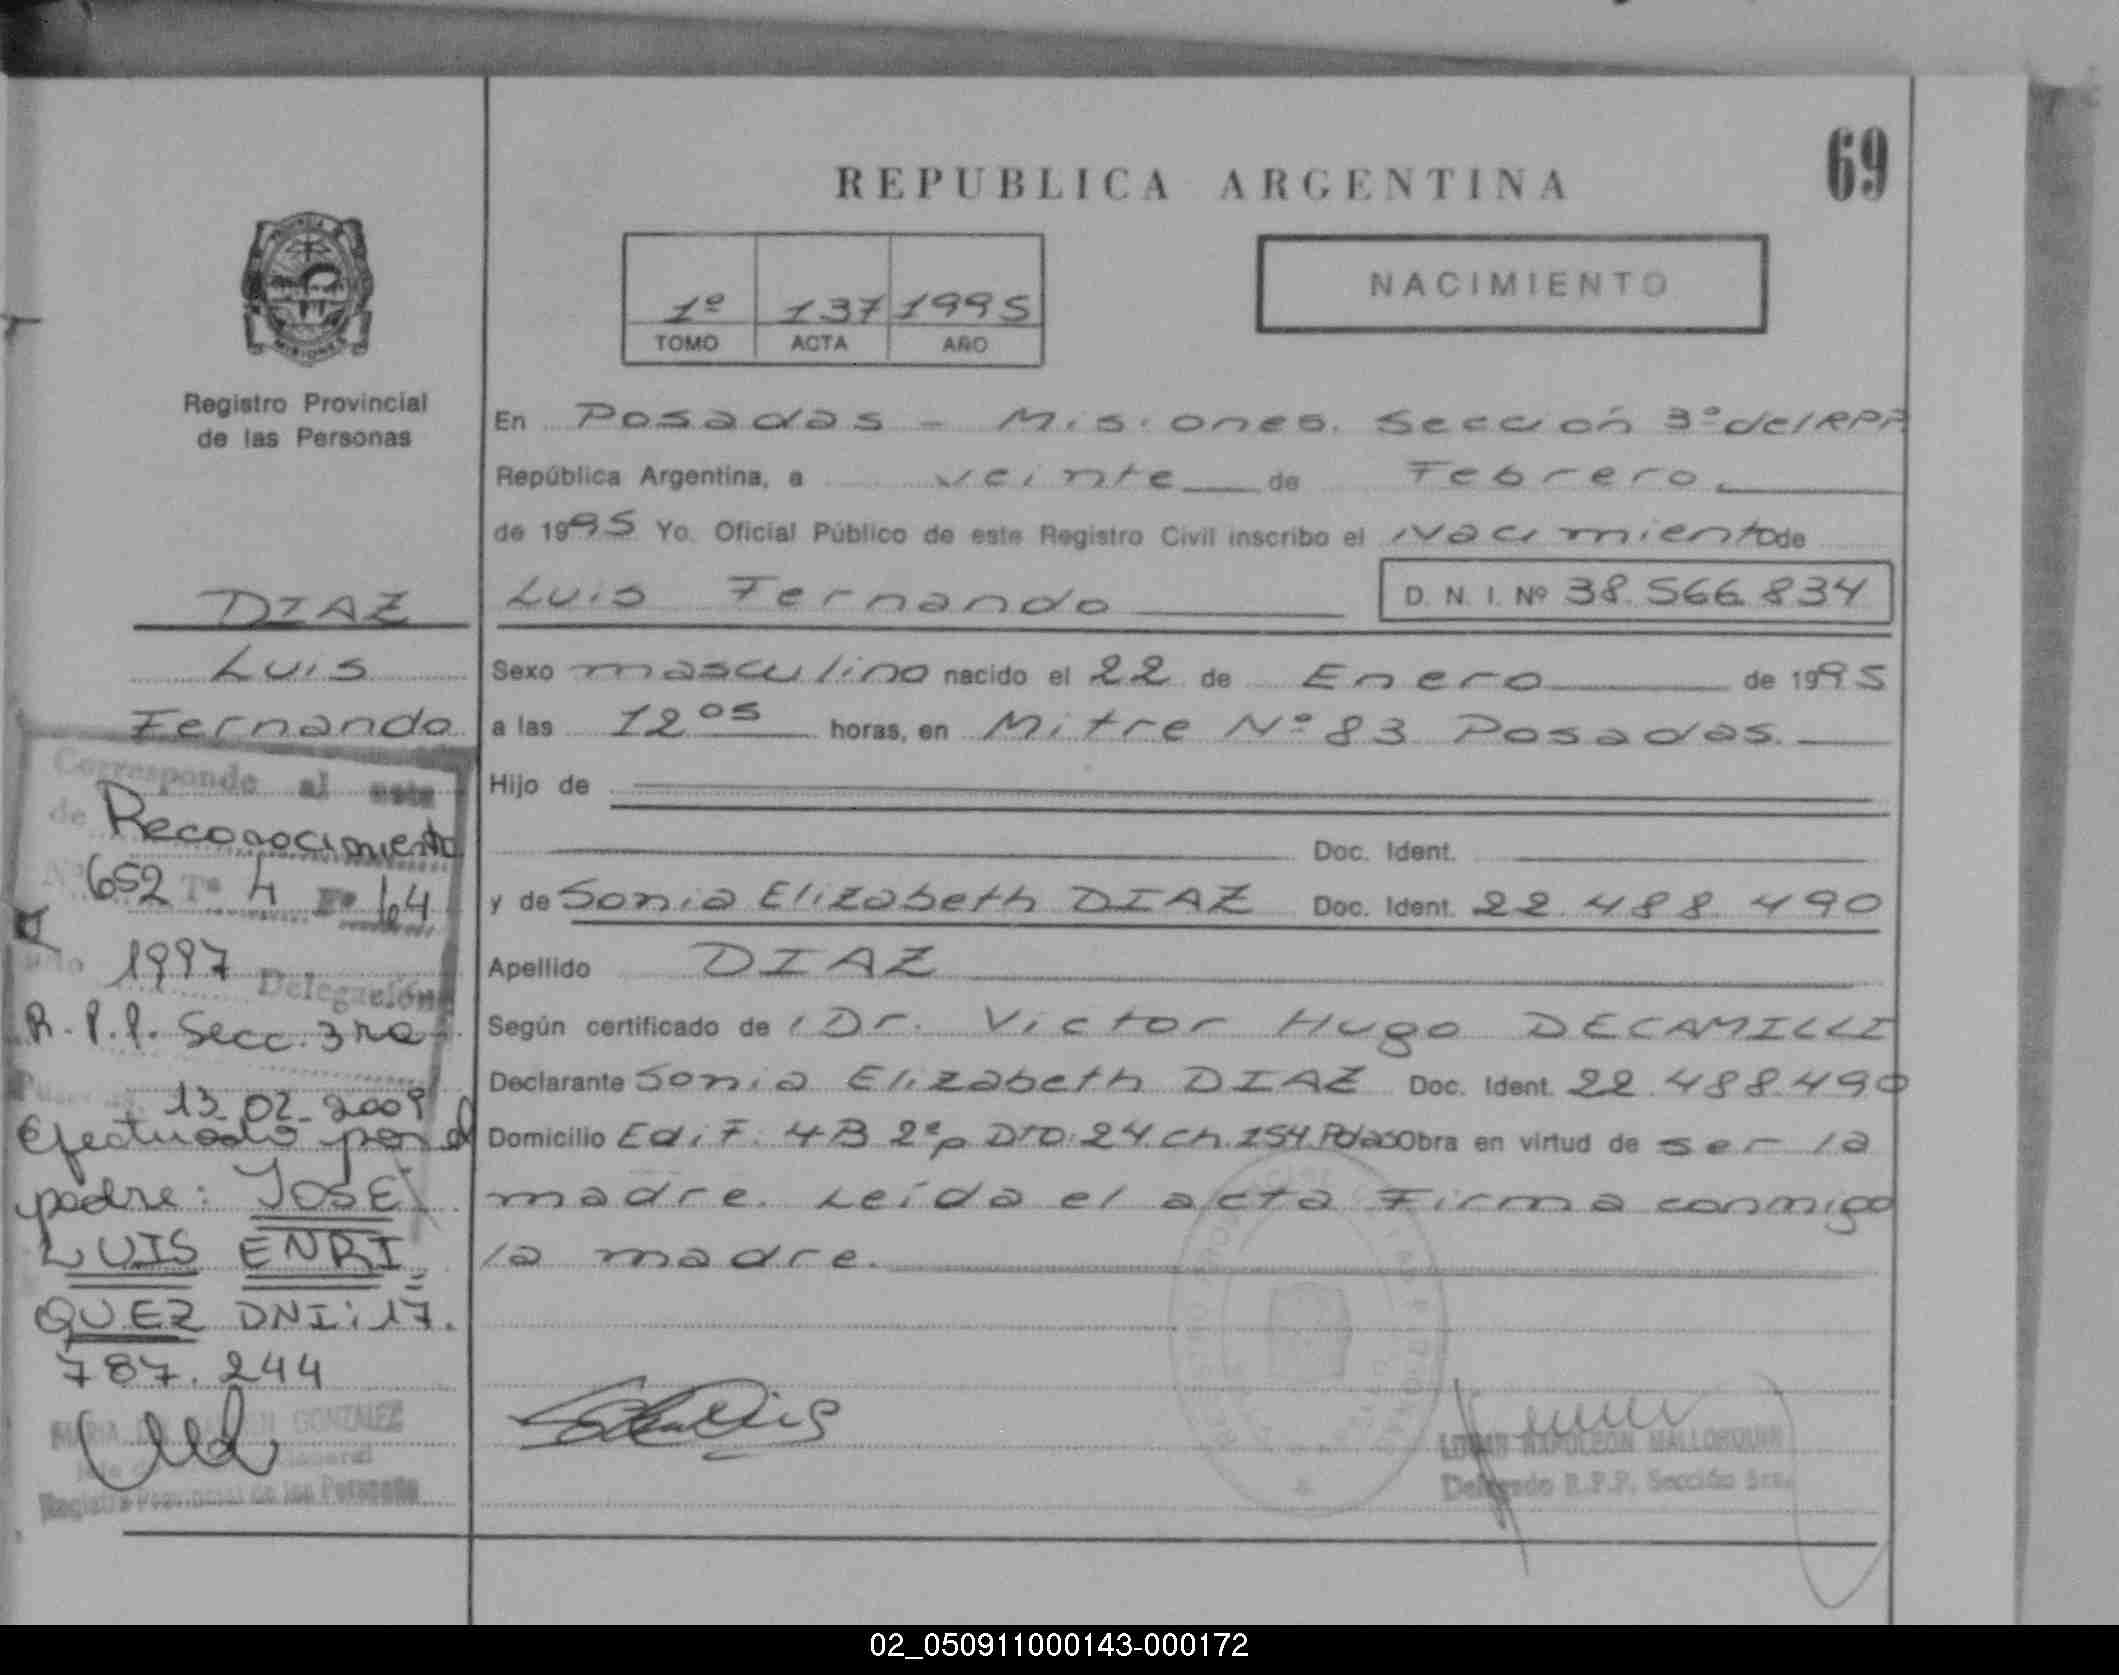 69
REPUBLICA ARGENTINA
PROVINCIA
MISIONES
Registro Provincial
de las Personas
1º 137 1995
TOMO ACTA AÑO
NACIMIENTO
En Posadas - Misiones. Sección 3º del RPP
República Argentina, a veinte de Febrero.
de 1995 Yo. Oficial Público de este Registro Civil inscribo el Nacimiento de
Luis Fernando D. N. I. Nº 38.566.834
Sexo masculino nacido el 22 de Enero de 1995
a las 12 05 horas, en Mitre Nº 83 Posadas.
Hijo de
Doc. Ident.
y de Sonia Elizabeth DIAZ Doc. Ident. 22.488.490
Apellido DIAZ
Según certificado de Dr. Victor Hugo DECAMILLI
Declarante Sonia Elizabeth DIAZ Doc. Ident. 22.488.490
Domicilio Edif. 4B 2ºp Dto: 24 Ch. 154 Pdas Obra en virtud de ser la
madre. Leída el acta Firma conmigo
la madre.
NAPOLEON MALLORQUIN
Delegado R.P.P. Sección 3ra.
DIAZ
Luis
Fernando
Corresponde al
de Reconocimiento
Nº 652 Tº 4 Fº 64
1997 Delegación
R.P.P. Secc. 3ra
13-02-2009
Efectuado por el
padre: JOSE
LUIS ENRI
QUEZ DNI: 17.
787.244
MARIA GONZALEZ
Registro Provincial de las Personas
02_050911000143-000172